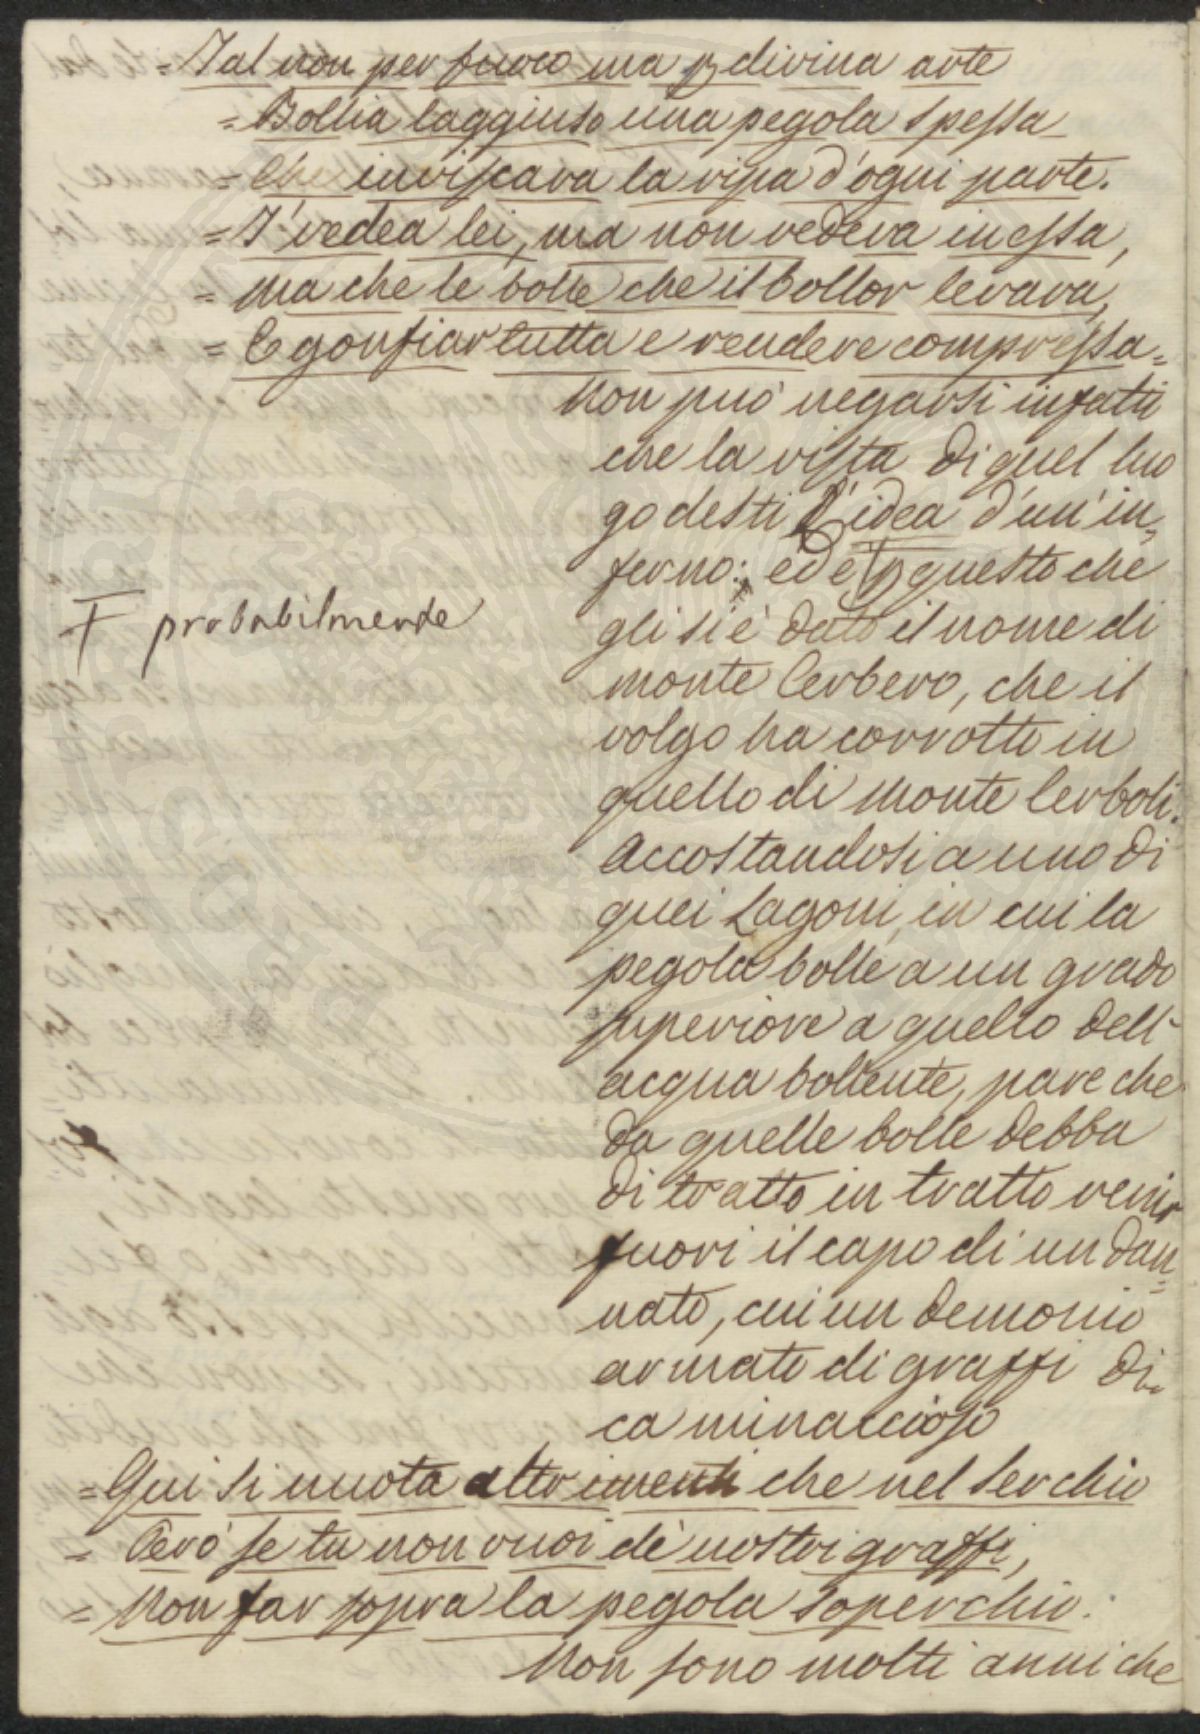 =Tal non per fuoco ma p divina arte
=Bollia laggiuso una pegola spessa
=Che inviscava la ripa d'ogni parte.
=I' vedea lei, ma non vedeva in essa,
=Ma che le bolle che il bollor levava,
=E gonfiar tutta e rendere compressa=
Non può negarsi infatti
che la vista di quel luo
go desti l'idea d'un'in=
ferno: ed è p questo che
Ŧ probabilmente
gli si è dato il nome di
monte Cerbero, che il
volgo ha corrotto in
quello di Monte Cerboli.
Accostandosi a uno di
quei Lagoni, in cui la
pegola bolle a un grado
superiore a quello dell'
acqua bollente, pare che
da quelle bolle debba
di tratto in tratto venir
fuori il capo di un dan=
nato, cui un demonio
armato di graffi di=
ca minaccioso
=Qui si nuota altrimenti che nel Serchio
= Però se tu non vuoi de' nostri graffi,
= Non far sopra la pegola soperchio.
Non sono molti anni che